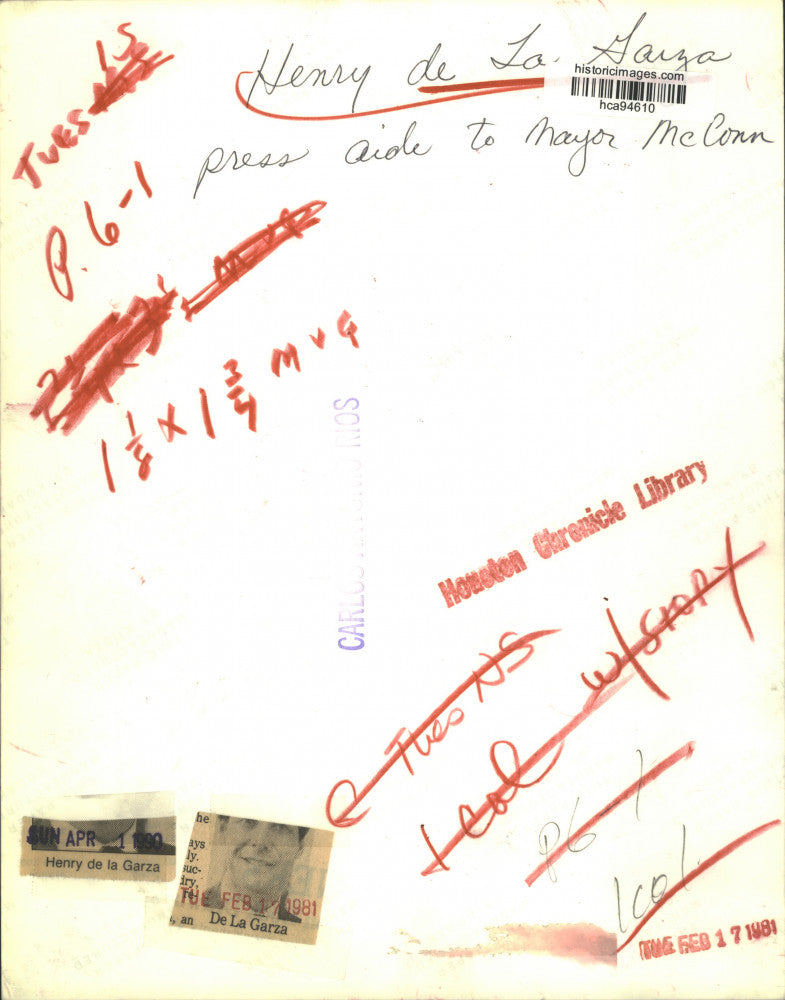 Henry de La Garza
historicimages.com
hca94610
press aide to Mayor McConn
TUES 1S
P. 6-1
MVG
1 1/8 X 1 3/4 MVG
CARLOS ANTONIO RIOS
Houston Chronicle Library
Tues NS
1 Col w/STORY
P6-1
1 col.
SUN APR 1 1990
Henry de la Garza
he
ays
ly.
suc-
iry,
TUE FEB 17 1981
, an
De La Garza
TUE FEB 17 1981